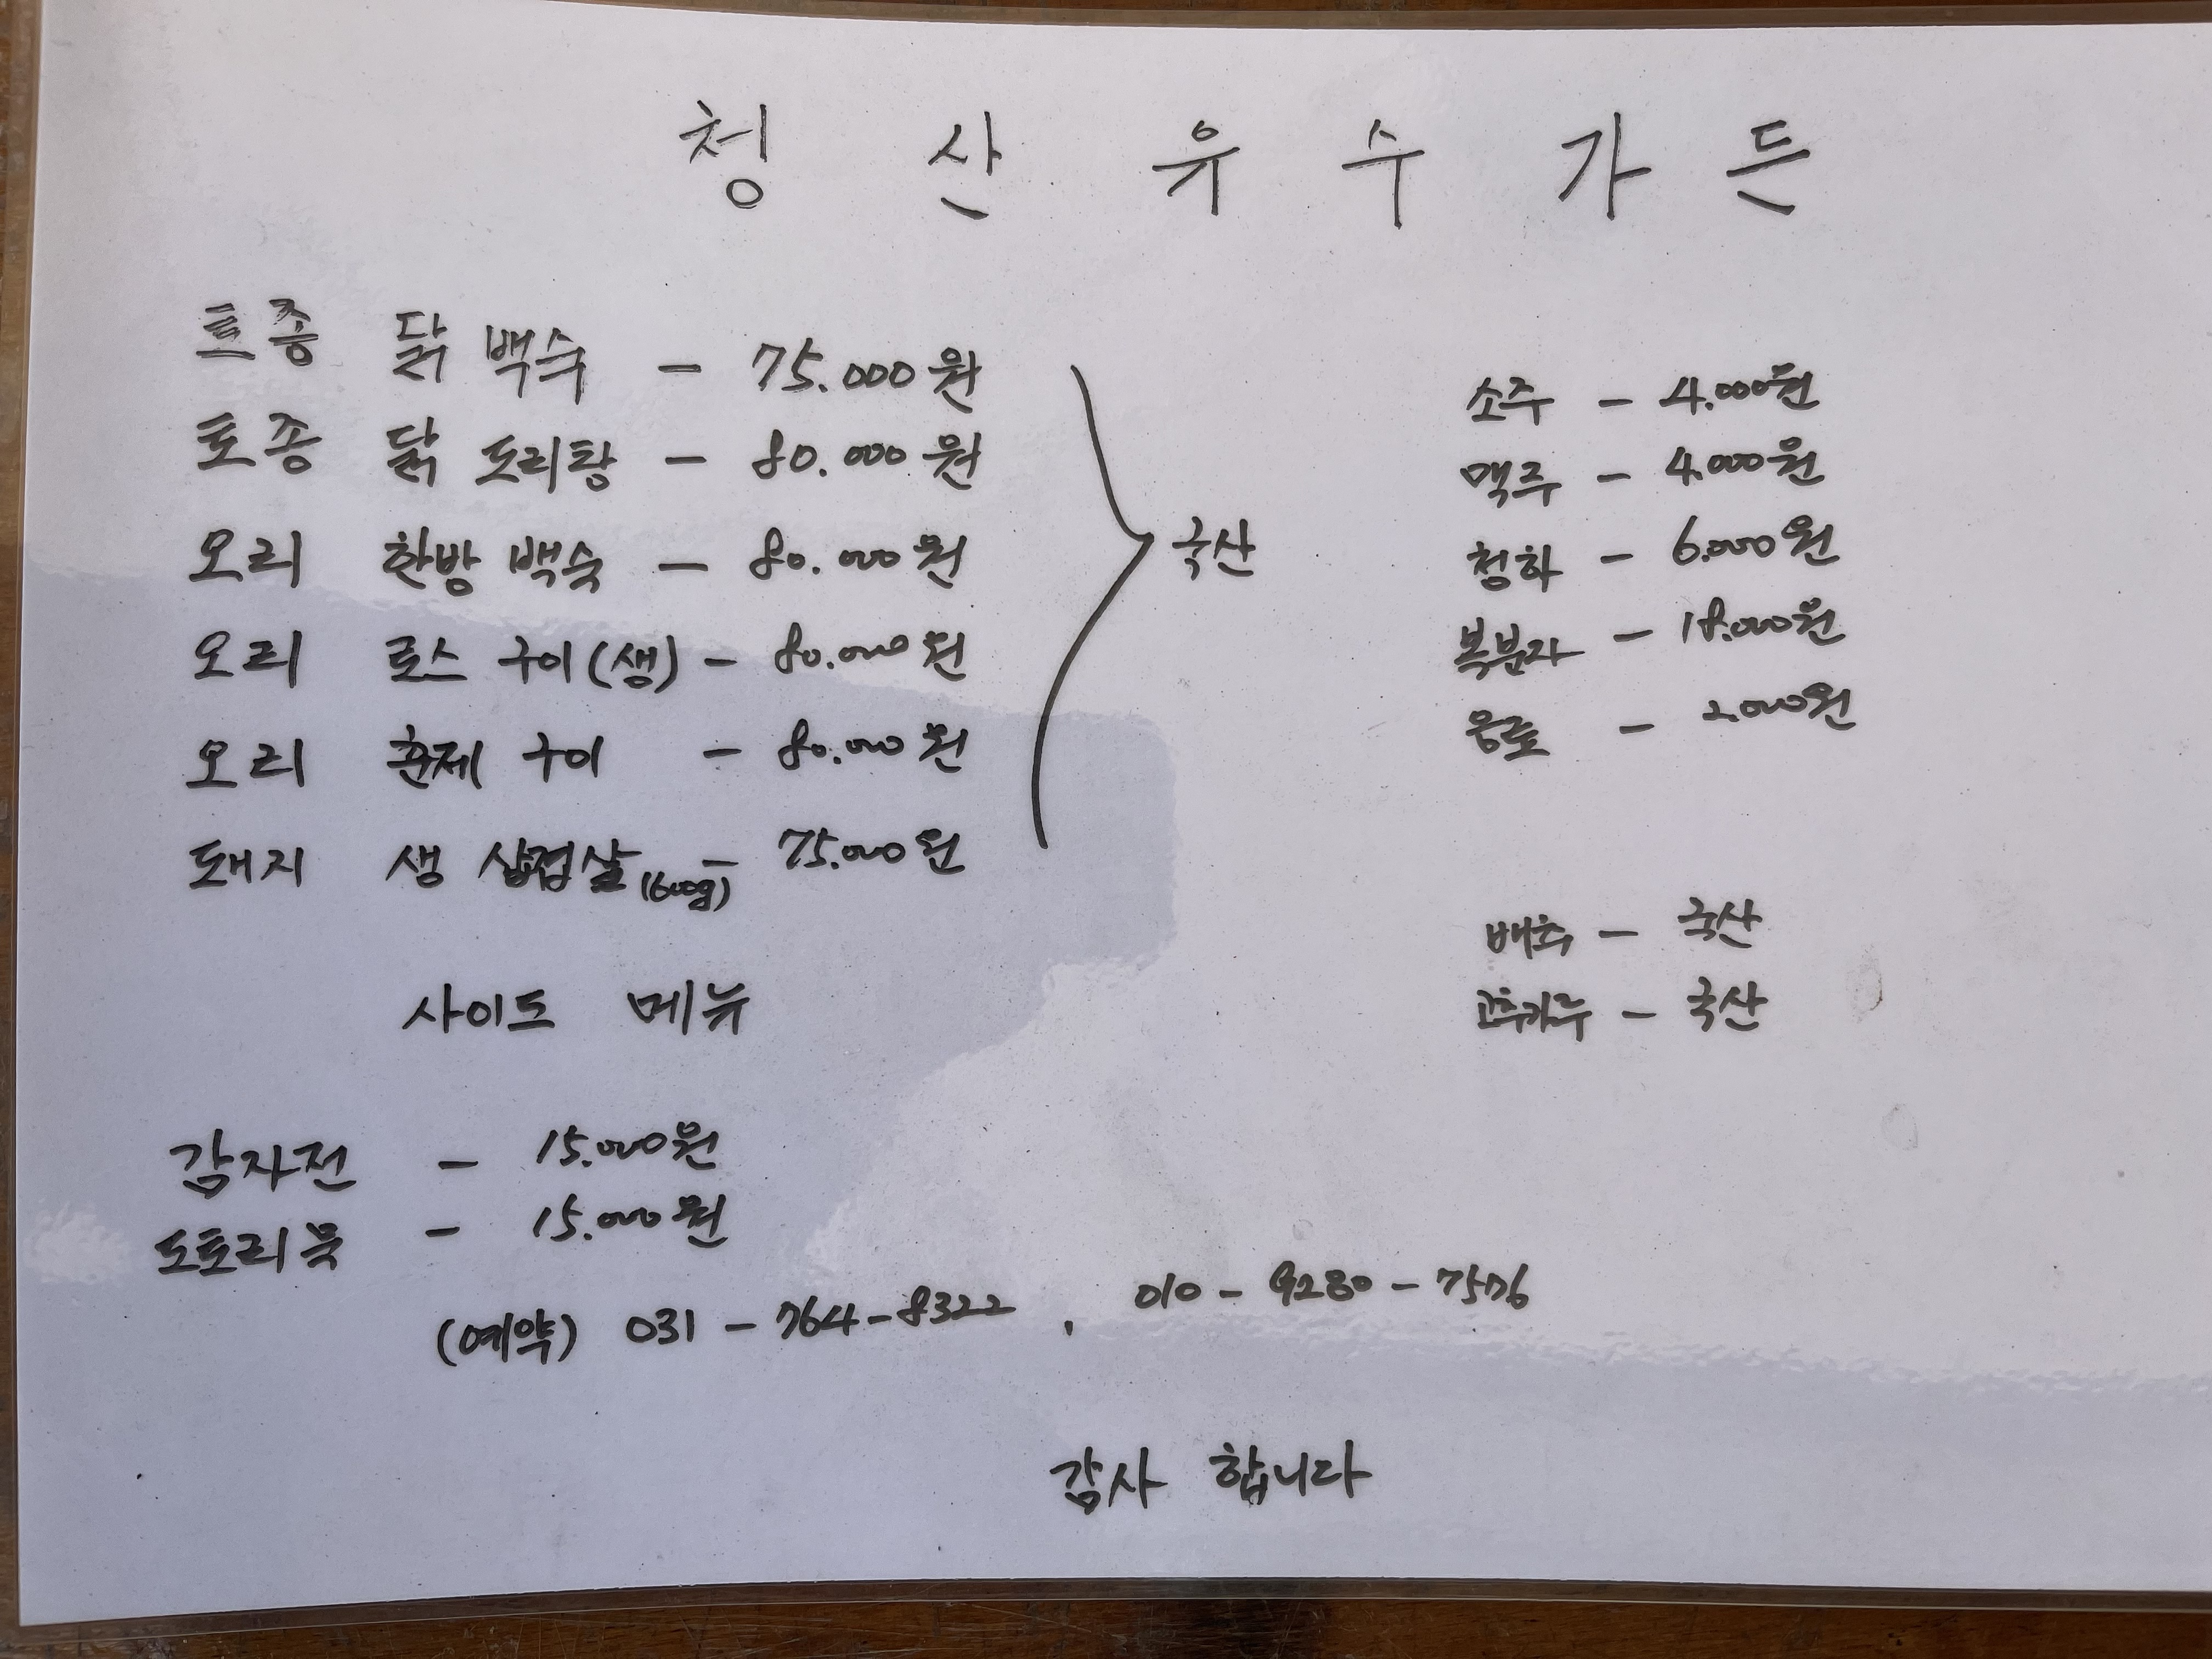 청산유수가든
토종 닭 백숙 - 75.000원
토종 닭 도리탕 - 80.000원
오리 한방 백숙 - 80.000원
오리 로스 구이(생) - 80.000원
오리 훈제 구이 - 80.000원
돼지 생 삼겹살(600g) - 75.000원
국산
사이드 메뉴
감자전 - 15.000원
도토리묵 - 15.000원
소주 - 4.000원
맥주 - 4.000원
청하 - 6.000원
복분자 - 18.000원
음료 - 2.000원
배추 - 국산
고추가루 - 국산
(예약) 031-764-8322 , 010-9280-7576
감사 합니다